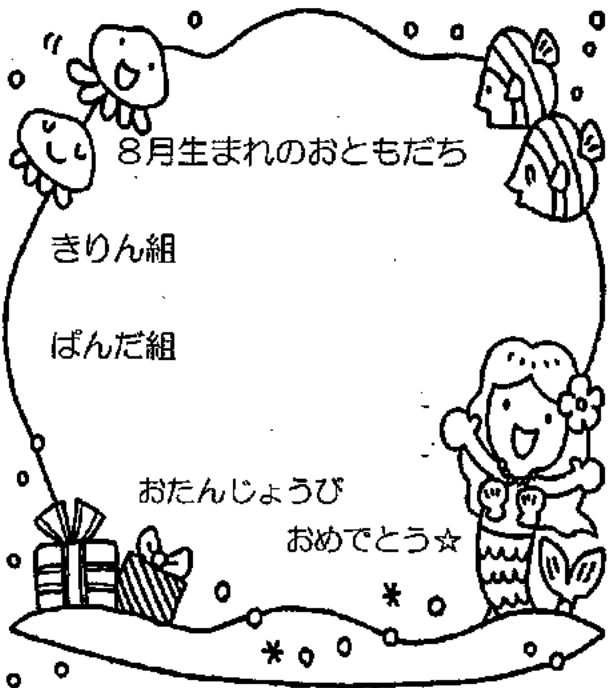 ８月生まれのおともだち
きりん組
ぱんだ組
おたんじょうび
おめでとう☆